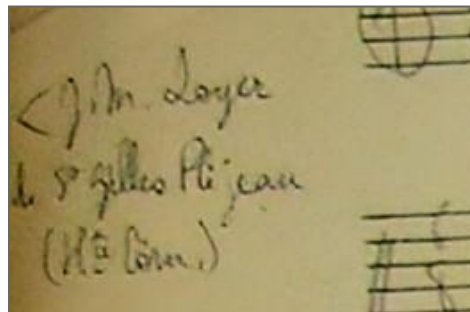 < J. M. Loyer
de St Gilles Pligeau
(Hte Corn.)